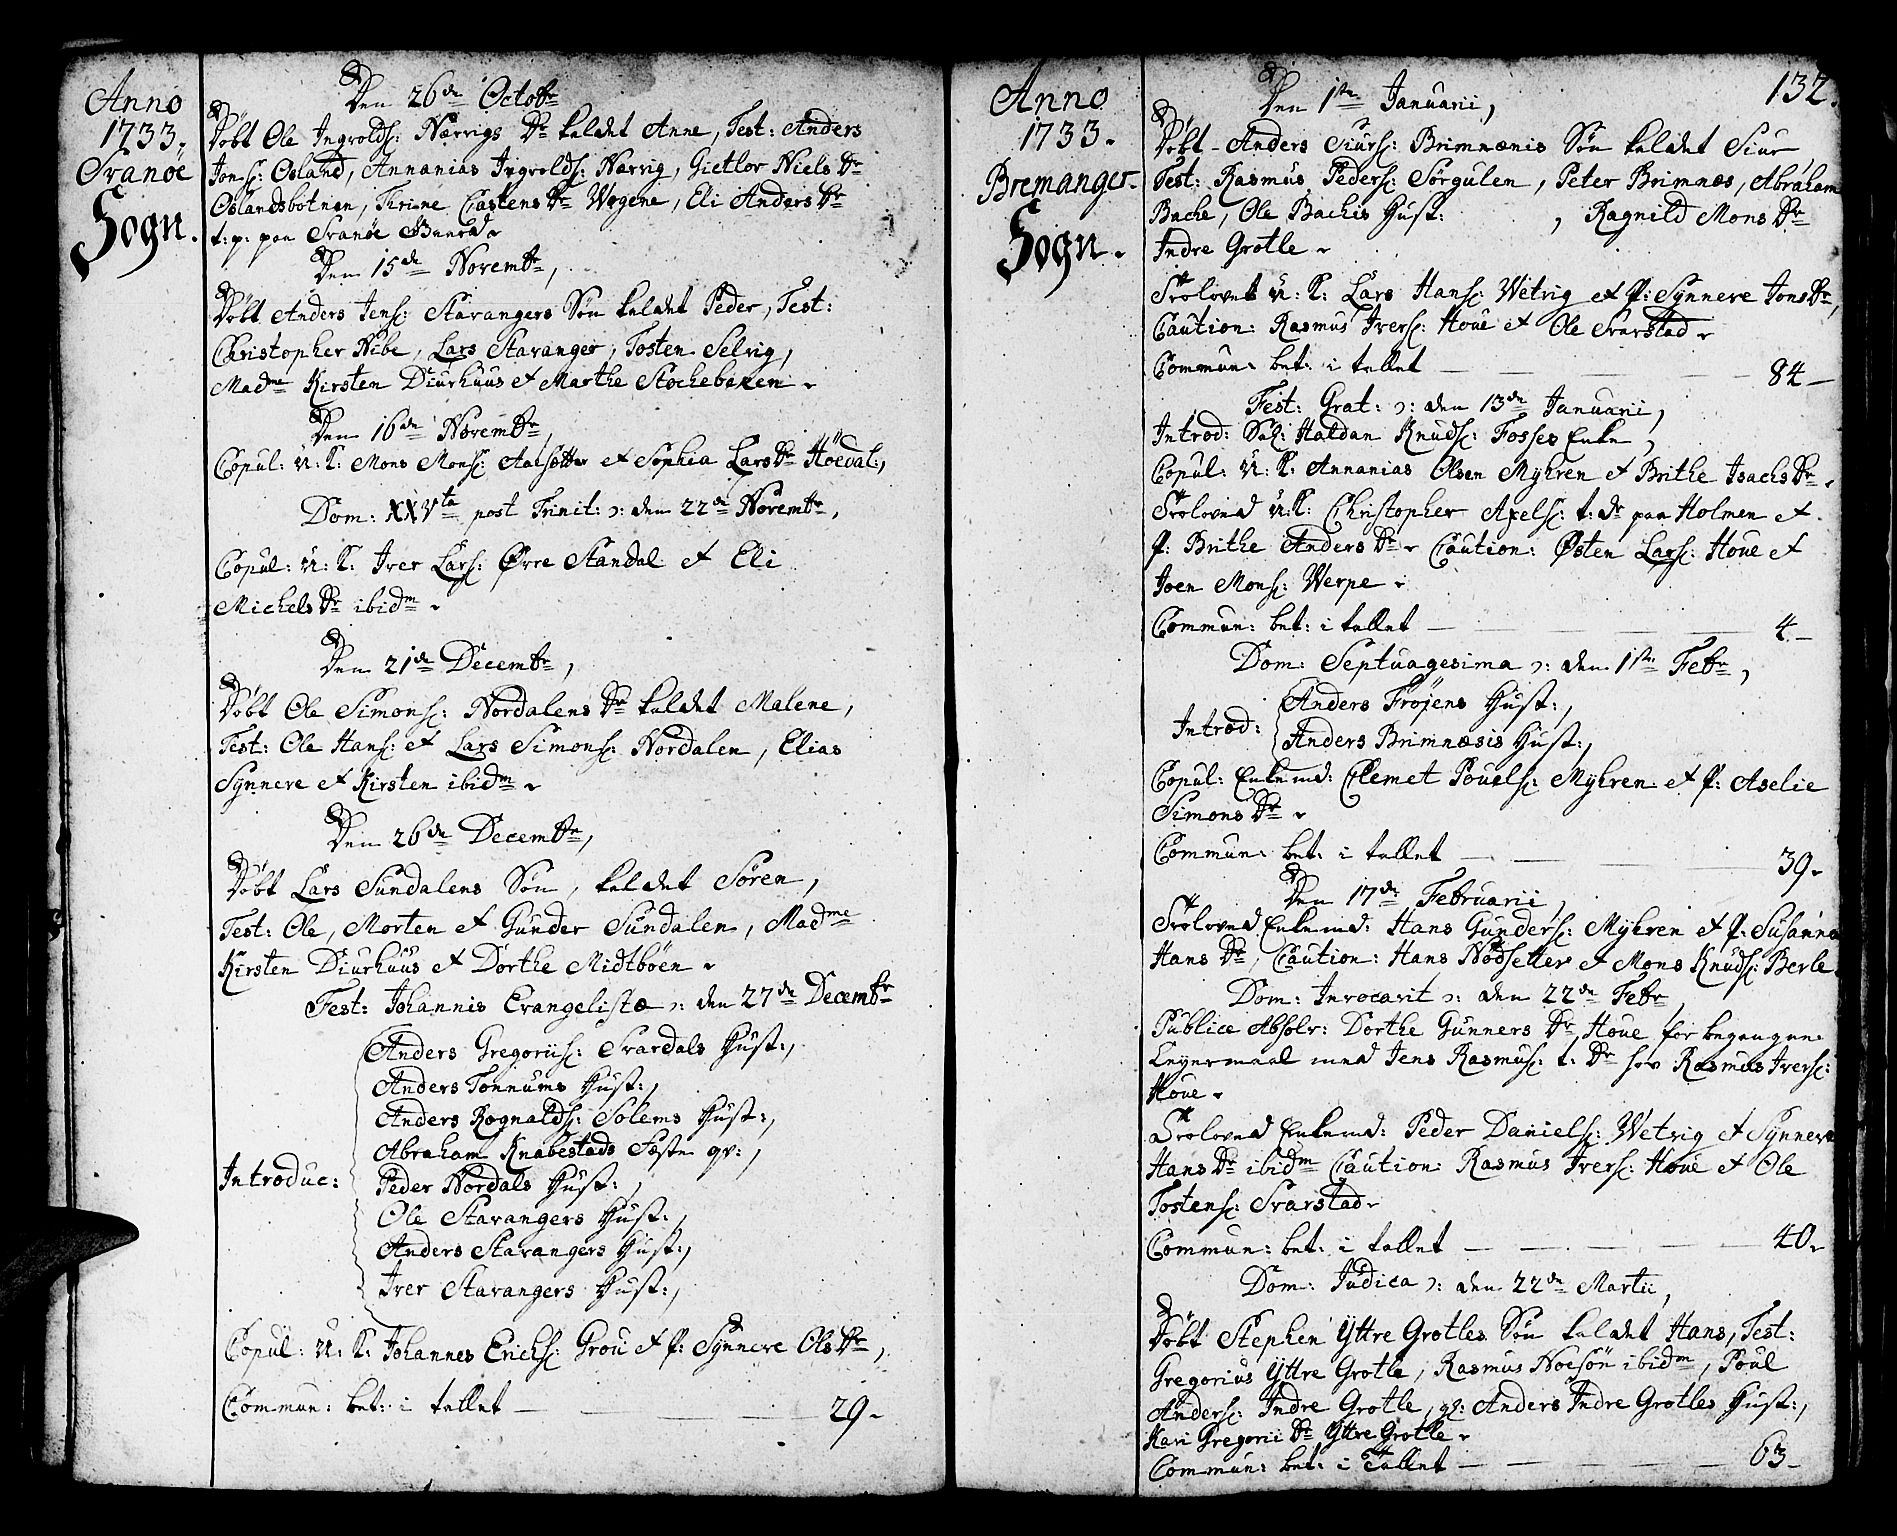 Anno
1733.
Svanøe
Sogn.
Den 26de Octobr
Døbt Ole Ingvolds: Nærvigs Dr kaldet Anne, Test: Anders
Jons: Osland, Annanias Ingvolds: Nærvig, Giertlov Niels Dr
Oslandsbotnen, Tirine Castens Dr Vogene, Eli Anders Dr
t: p: paa Svanøe Gaard
Den 15de Novembr,
Døbt Anders Jens: Stavangers Søn kaldet Peder, Test:
Christopher Nibe, Lars Stavanger, Tosten Selvig,
Madme Kirsten Diurhuus et Marthe Stochebøxen
Den 16de Novembr,
Copul: U: K: Mons Mons: Aasætter et Sophia Lars Dr Høedal,
Dom: XXVta post Trinit: ɔ: den 22de Novembr,
Copul: U: K: Iver Lars: Øvre Standal et Eli
Michels Dr ibidm
Den 21de Decembr,
Døbt Ole Simons: Nordalens Dr kaldet Malene,
Test: Ole Hans: et Lars Simons: Nordalen, Elias
Synneve et Kirsten ibidm
Den 26de Decembr,
Døbt Lars Sundalens Søn, kaldet Søren,
Test: Ole, Morten et Gunder Sundalen, Madme
Kirsten Diurhuus et Dorthe Midtbøen
Fest: Johannis Evangelistæ ɔ: den 27de Decembr
Introduc:
Anders Gregorius: Svardals Hust:,
Anders Tonnums Hust:,
Anders Rognalds: Solems Hust:,
Abraham Knabestads Fæste qv:,
Peder Nordals Hust:,
Ole Stavangers Hust:,
Anders Stavangers Hust:,
Iver Stavangers Hust:,
Copul: U: K: Johannes Erichs: Grou et P: Synneve Ols Dr,
Commun: bet: i tallet — 29.
132.
Anno
1733.
Bremanger
Sogn.
Den 1ste Januarii,
Døbt Anders Siurs: Brimnænis Søn kaldet Siur
Test: Rasmus Peders: Sørgulen, Peter Brimnæs, Abraham
Bache, Ole Bachis Hust: , Ragnild Mons Dr
Indre Grotle
Trolovet U: K: Lars Hans: Wetvig et P: Synneve Jons Dr,
Caution: Rasmus Ivers: Houe et Ole Svarstad
Commun: bet: i tallet — 84
Fest: Grat: ɔ: den 13de Januarii,
Introd: Sal: Haldan Knuds: Fosses Enke,
Copul: U: K: Annanias Olsen Myhren et Brithe Isachs Dr
Troloved U: K: Christopher Axels: t: Dr paa Holmen et
P: Brithe Anders Dr Caution: Østen Lars: Houe et
Joen Mons: Werpe
Commun: bet: i tallet — 4
Dom: Septuagesima ɔ: den 1ste Febr,
Introd:
Anders Frøjens Hust:,
Anders Brimnæsis Hust:,
Copul: Enkemd: Clemet Pouels: Myhren et P: Aselie
Simons Dr
Commun: bet: i tallet — 39.
Den 17de Februarii,
Troloved Enkemd: Hans Gunders: Myhren et P: Susanna
Hans Dr, Caution: Hans Nødsetter et Mons Knuds: Berle
Dom: Invocavit ɔ: den 22de Febr,
Publice Absolv: Dorthe Gunners Dr Houe for begangne
Leyermaal med Jens Rasmus: t: Dr hos Rasmus Ivers:
Houe
Troloved Enkemd: Peder Daniels: Wetvig et Synneve
Hans Dr ibidm Caution: Rasmus Ivers: Houe et Ole
Tostens: Svarstad
Commun: bet: i tallet — 40
Dom: Judica ɔ: den 22de Martii,
Døbt Stephen Yttre Grotles Søn kaldet Hans, Test:
Gregorius Yttre Grotle, Rasmus Noesøn ibidm, Poul
Anders: Indre Grotle, Anders Indre Grotles Hust:,
Kari Gregorii Dr Yttre Grotle
Commun: bet: i Tallet — 63